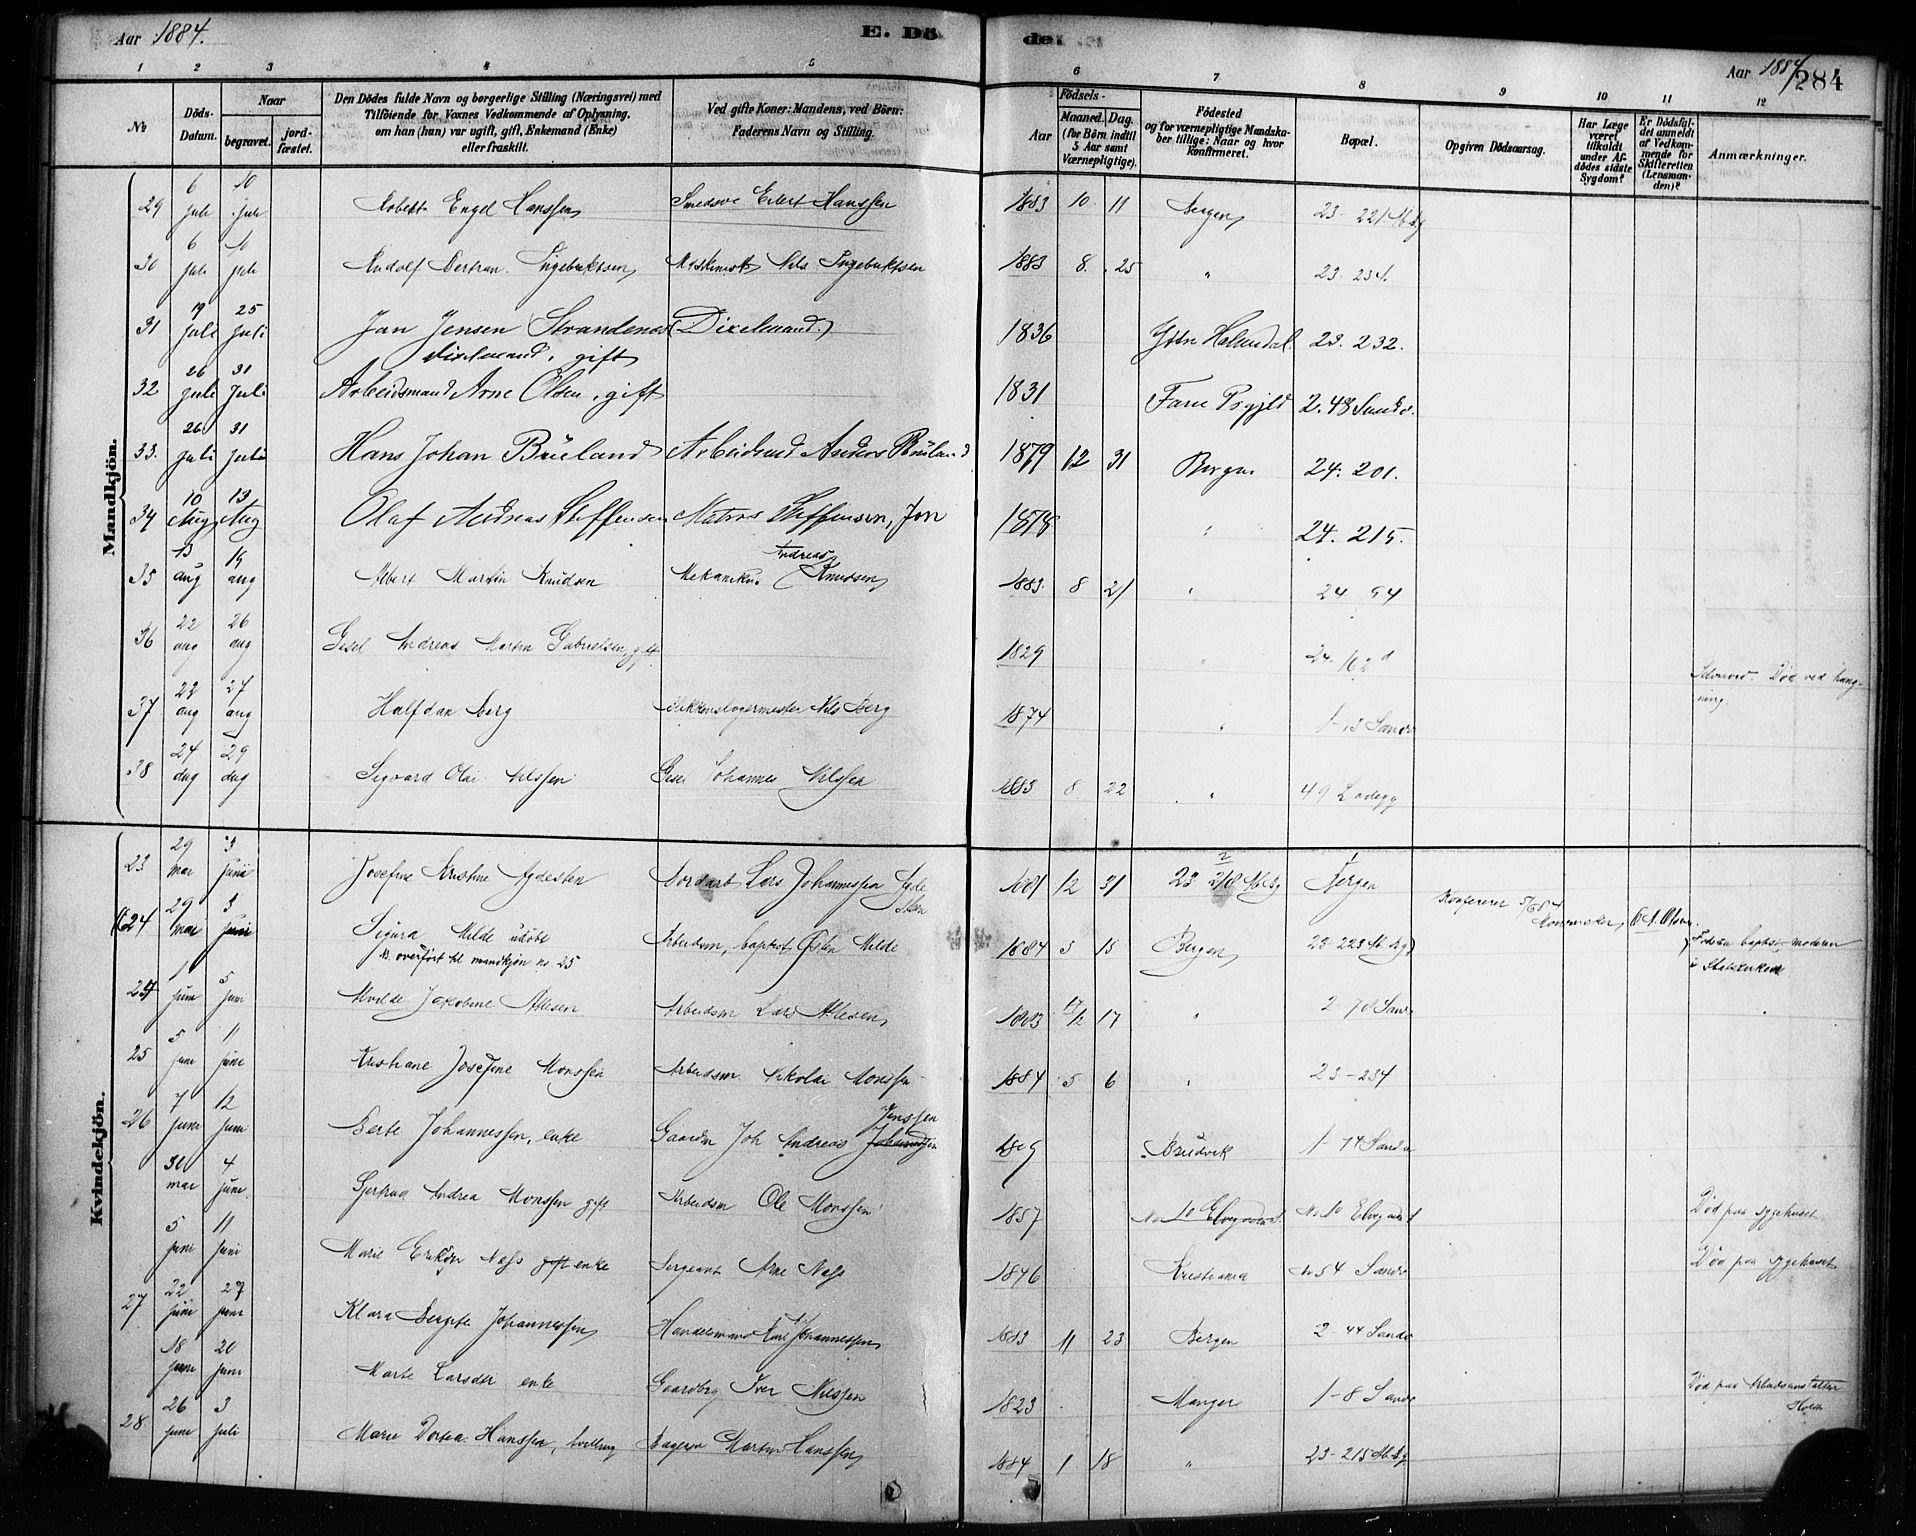 Aar 1884.
E. Dö
de
Aar 1884
284
1 2 3 4 5 6 7 8 9 10 11 12
No
Döds-Datum.
Naar
begravet.
jord-fæstet.
Den Dödes fulde Navn og borgerlige Stilling (Næringsvei) med
Tilföiende for Voxnes Vedkommende af Oplysning,
om han (hun) var ugift, gift, Enkemand (Enke)
eller fraskilt.
Ved gifte Koner: Mandens, ved Börn:
Faderens Navn og Stilling.
Födsels-
Aar
Maaned. Dag.
(for Börn indtil
5 Aar samt
Værnepligtige).
Födested
og for værnepligtige Mandska-
ber tillige: Naar og hvor
Konfirmeret.
Bopæl.
Opgiven Dödsaarsag.
Har Læge
været
tilkaldt
under Af-
dödes sidste
Sygdom?
Er Dödsfal-
det anmeldt
af Vedkom-
mende for
Skifteretten
(Lensman-
den)?
Anmærkninger.
Mandkjön.
29 6 juli 10 juli Robert Engel Hanssen Smedsv Eilert Hanssen 1883 10 11 Bergen 23-221
30 6 juli 10 juli Rudolf Bertran Ingebriktsen Maskinist Nils Ingebriktsen 1883 8 25 " 23-234
31 19 Juli 25 Juli Jan Jensen Strandenæs (Dixelmand.) 1836 23. 232.
dixelmand, gift
32 26 juli 31 Juli Arbeidsmand Arne Olsen, gift 1831 2.48 Sandv.
33. 26 juli 31 juli Hans Johan Büeland Arbeidsmd Anders Büeland 1879 12 31 Bergen 24. 201.
34 10 Aug 13 Aug Olaf Andreas Steffensen Matros Steffensen, Jon 1878 " 24. 215.
35 13 aug 19 aug Albert Martin Knudsen Mekaniker Andreas Knudsen 1883 8 21 " 24 94
36 22 aug 26 aug Gesel Andreas Martin Gabrielsen, gift 1829 " 24-162 d
37 22 aug 27 aug Halfdan Berg Nils Berg 1874 " 1-13 Sandv
Selvmord. Död ved hæng-
ning.
38 24 aug 29 aug Sigvard Olai Nilssen Gesel Johannes Nilssen 1883 8 22 " 49 Ladegg
Kvindekjön.
23 29 mai 3 juni Josefine Kristine Aydesten Lars Johannessen 1881 12 31 Bergen
24 29 mai 3 juni Sigurd Milde udöbt Arbeidsm, baptist Östen Milde 1884 5 18 Bergen 23-223
overfört til mandkjön no 25
Konfererer 5/6 84
Faderen baptist, moderen
i Statskirken
24 1 juni 5 juni Jakobine Allesen Arbeidsm Lars Allesen 1883 12 17 " 2-78 Sandv
25 5 juni 11 juni Kristiane Josefine Monssen Arbeidsm. Nikolai Monssen 1884 5 6 " 23-234
26 7 juni 12 juni Berte Johannessen, enke Gaardm Joh Andreas Jenssen 1809 Brudvik 1-74 Sandv
30 mai 4 juni Gjertrud Andrea Monssen gift Arbeidsm Ole Monssen 1857 No 10 Elvegaden No 10 Elvegaden Död paa sygehuset
5 juni 11 juni Marie Næss enke Sergeant Arne Næss 1846 Kristiania No 54 Sandv Död paa sygehuset
27 22 juni 27 juni Klara Bergite Johannessen Handelsmand Karl Johannessen 1883 11 23 Bergen 2-44 Sandv
18 juni 20 juni Marte Larsdtr enke Gaardbrg Iver Nilssen 1823 Manger 1-8 Sandv Död paa Arbeidsanstalten
28 26 juni 3 juli Marie Dortea Hanssen, tvilling Bagersv Martin Hanssen 1884 1 18 " 23-215